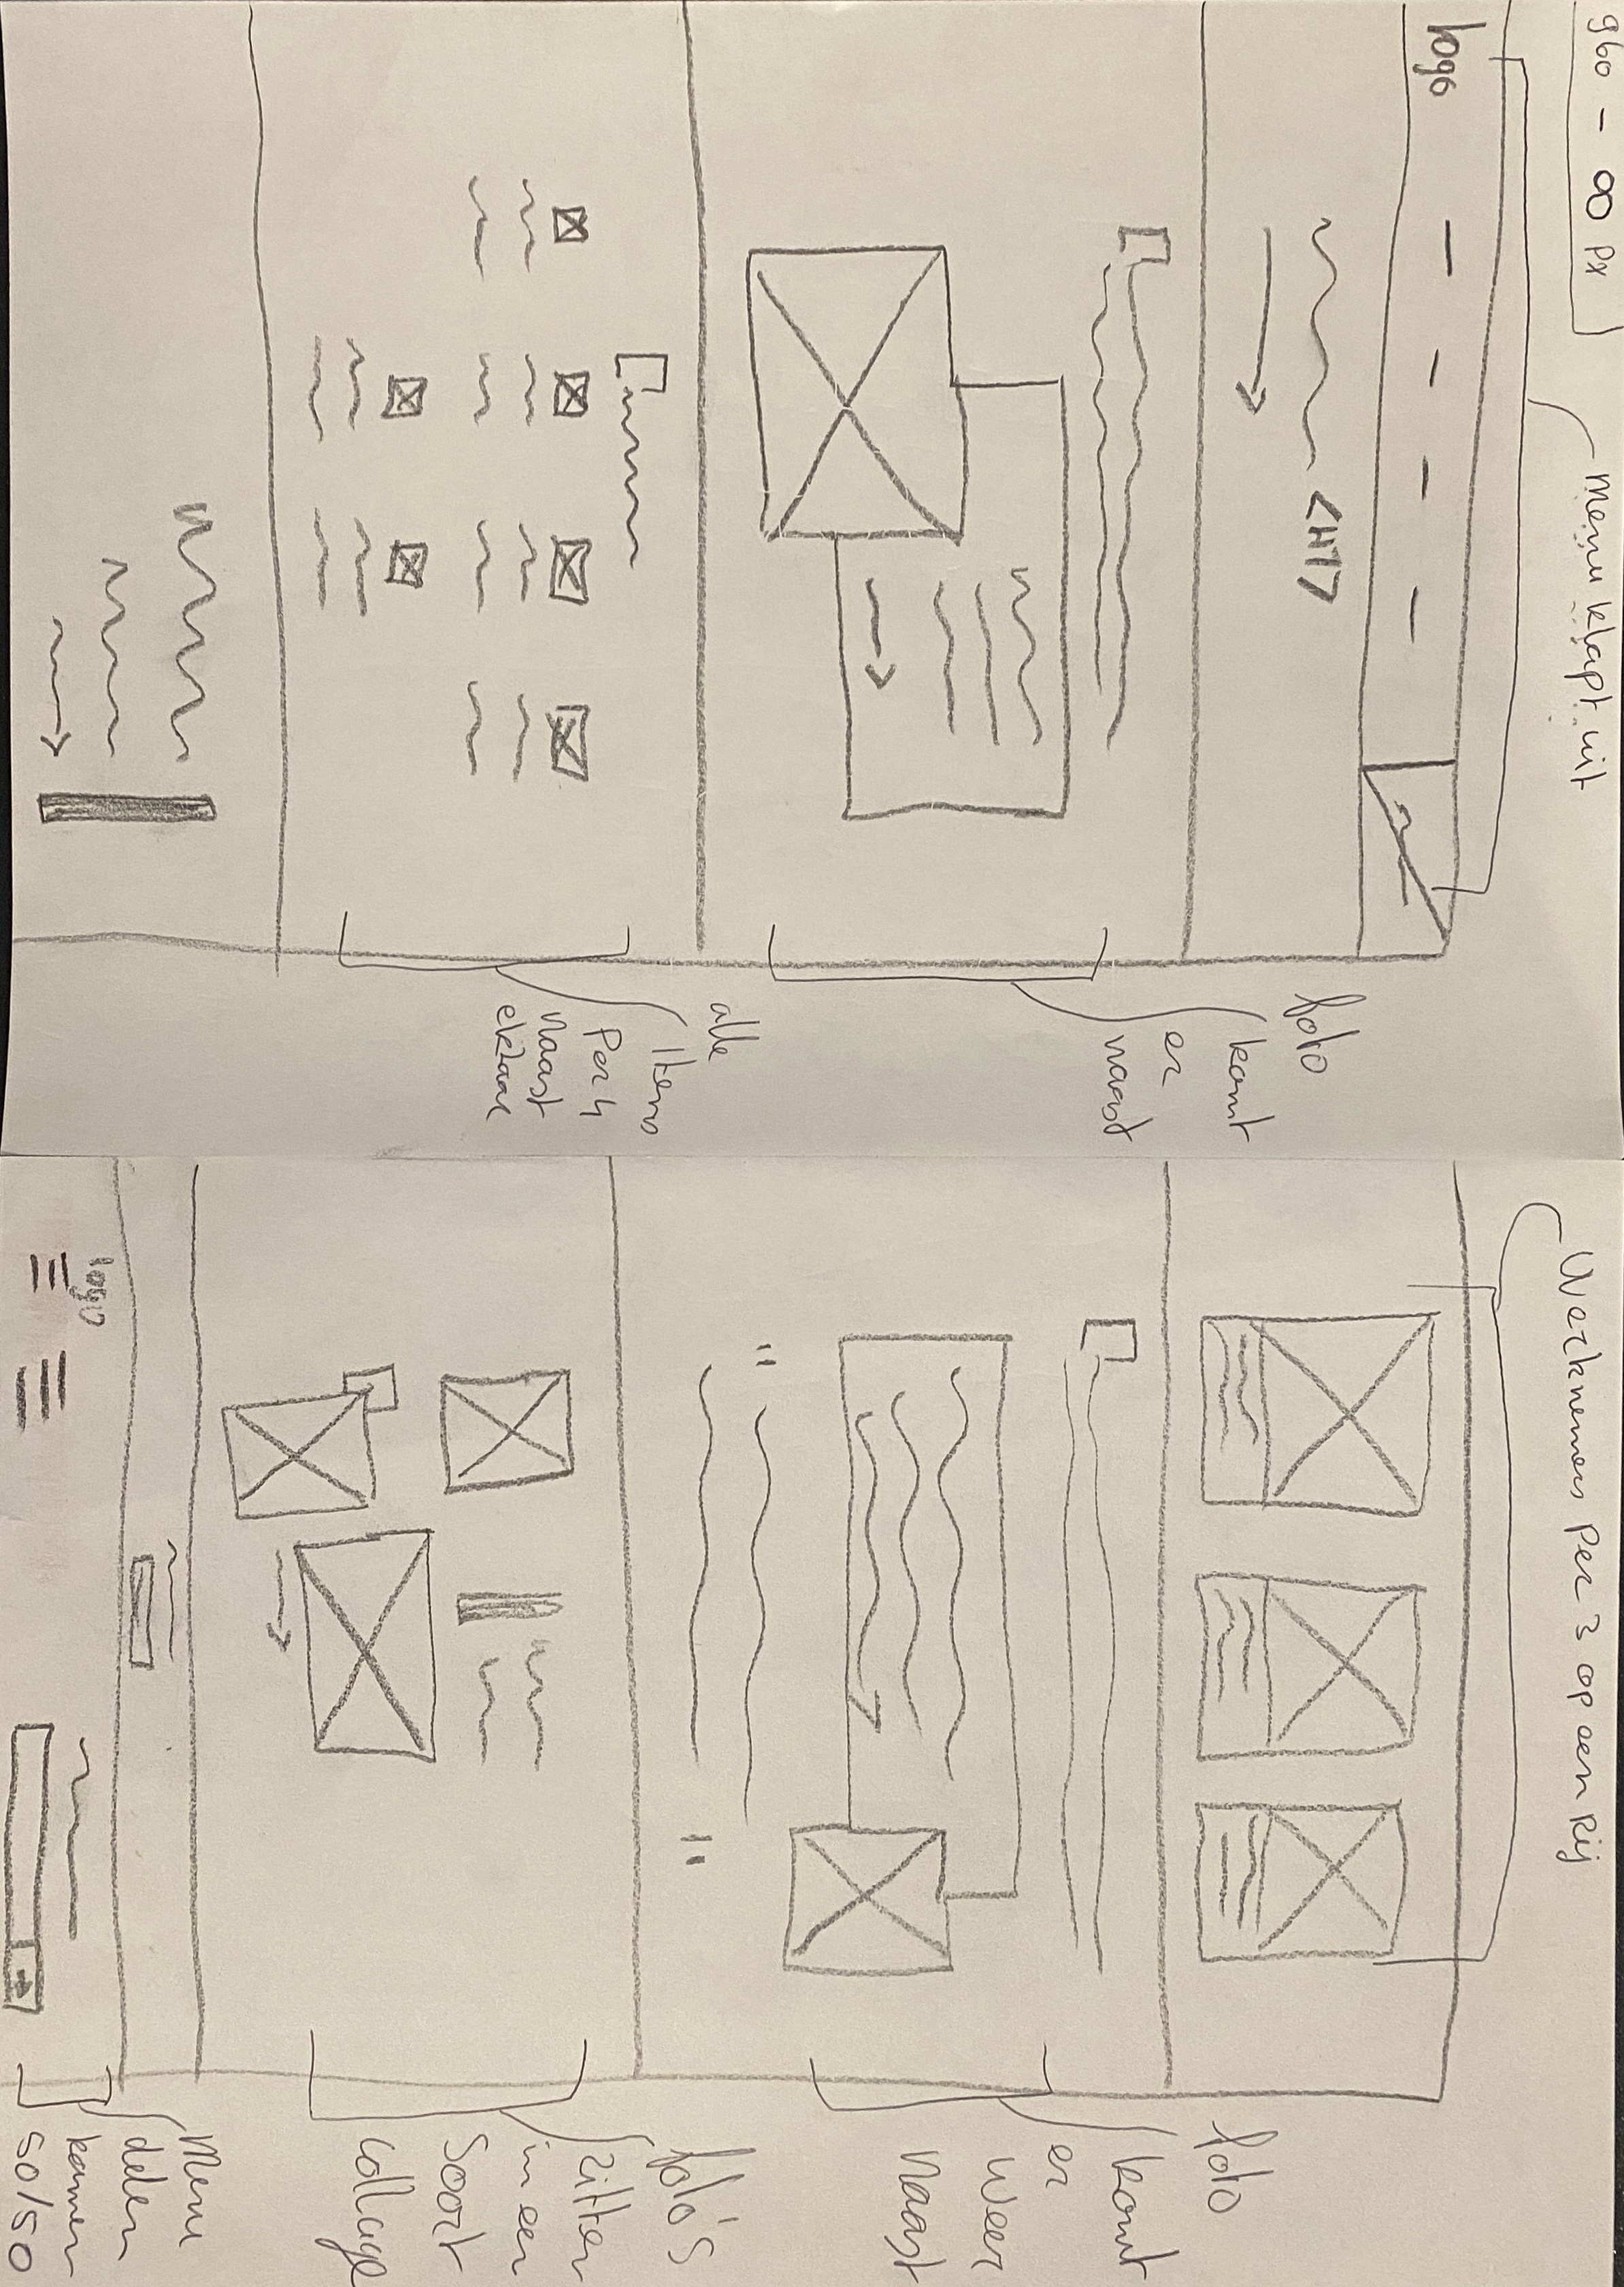 960 - ∞ px
menu klapt uit
logo
<H1>
foto
komt
er
naast
alle
items
Per 4
naast
elkaar
Werknemers per 3 op een rij
foto
komt
er
weer
naast
foto's
zitten
in een
soort
collage
logo
Menu
delen
komen
50/50